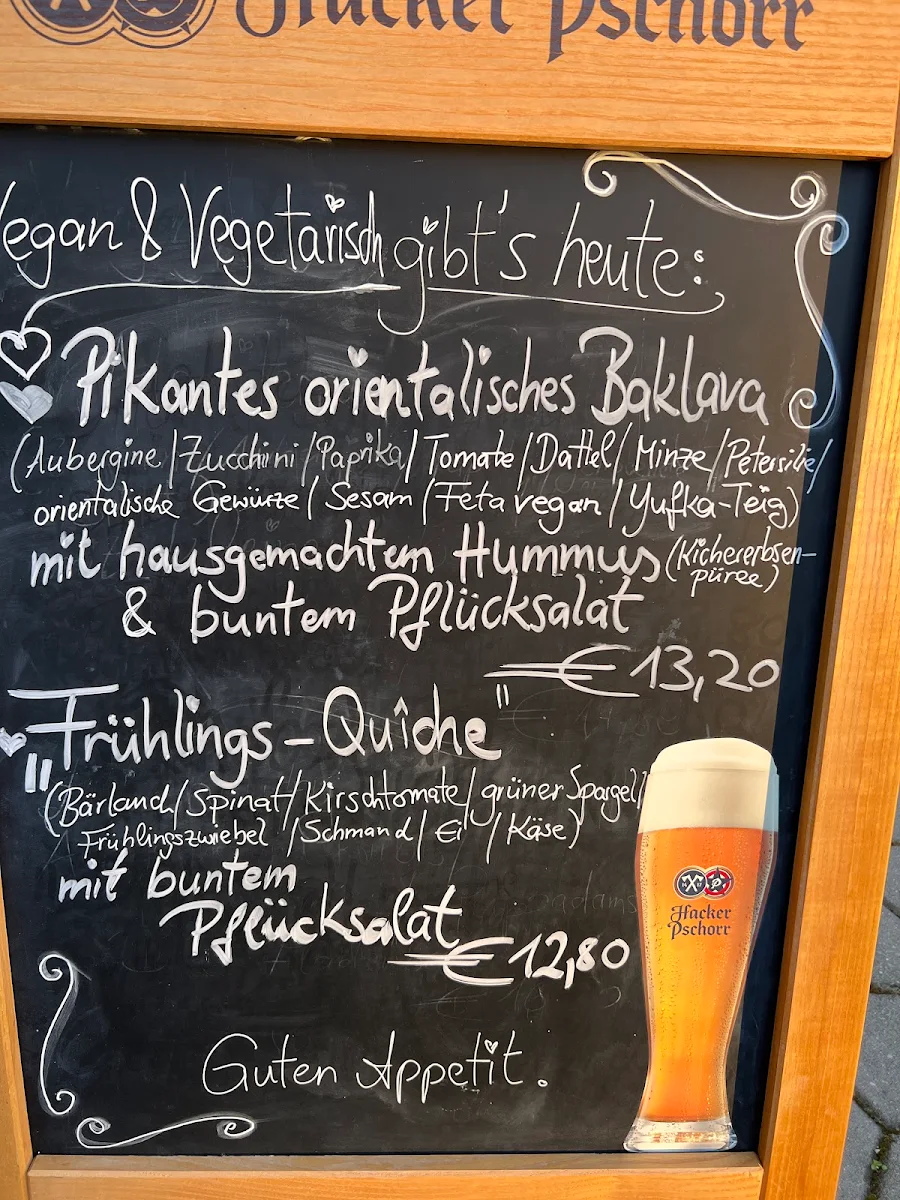 Hacker Pschorr
Vegan & Vegetarisch gibt's heute:
Pikantes orientalisches Baklava
(Aubergine/Zucchini/Paprika/Tomate/Dattel/Minze/Petersilie/
orientalische Gewürze/Sesam/Feta vegan/Yufka-Teig)
mit hausgemachtem Hummus (Kichererbsen-
püree)
& buntem Pflücksalat
€ 13,20
„Frühlings-Quîche"
(Bärlauch/Spinat/Kirschtomate/grüner Spargel/
Frühlingszwiebel/Schmand/Ei/Käse)
mit buntem
Pflücksalat
€ 12,80
Hacker
Pschorr
Guten Appetit.